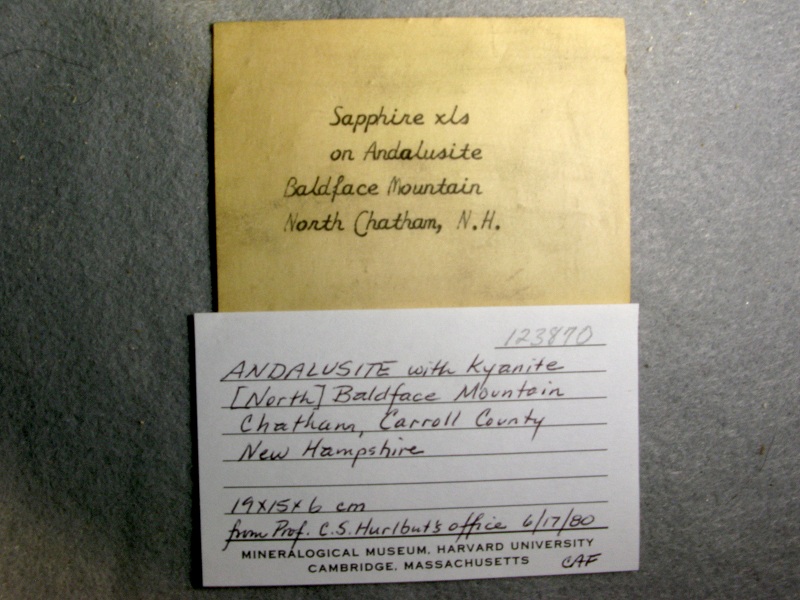 Sapphire xls
on Andalusite
Baldface Mountain
North Chatham, N.H.
123870
ANDALUSITE with Kyanite
[North] Baldface Mountain
Chatham, Carroll County
New Hampshire
19x15x6 cm
from Prof. C.S. Hurlbut's office 6/17/80
MINERALOGICAL MUSEUM, HARVARD UNIVERSITY
CAMBRIDGE, MASSACHUSETTS
CAF